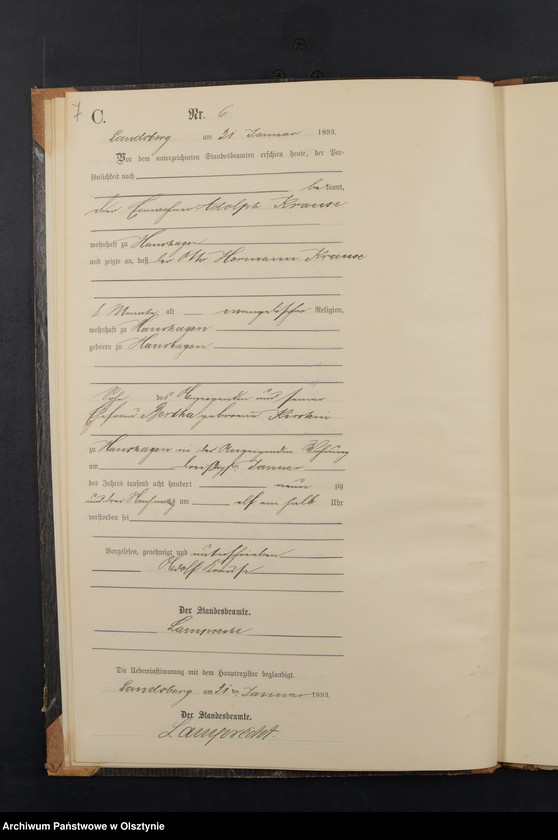 7
C.
Nr. 6
Landsberg am 21 Januar 1893.
Vor dem unterzeichneten Standesbeamten erschien heute, der Per-
sönlichkeit nach
bekannt,
der Einwohner Adolph Krause
wohnhaft zu Hanshagen
und zeigte an, daß der Otto Hermann Krause
Monate alt evangelischer Religion,
wohnhaft zu Hanshagen
geboren zu Hanshagen
Sohn des Anzeigenden und seiner
Ehefrau Bertha geborene
zu Hanshagen in des Anzeigenden Wohnung
am Januar
des Jahres tausend acht hundert neun zig
und drei Nachmittags um elf ein halb Uhr
verstorben sei
Vorgelesen, genehmigt und unterschrieben
Adolf Krause
Der Standesbeamte.
Lamprecht
Die Uebereinstimmung mit dem Hauptregister beglaubigt.
Landsberg am 21 ten Januar 1893.
Der Standesbeamte.
Lamprecht.
Archiwum Państwowe w Olsztynie